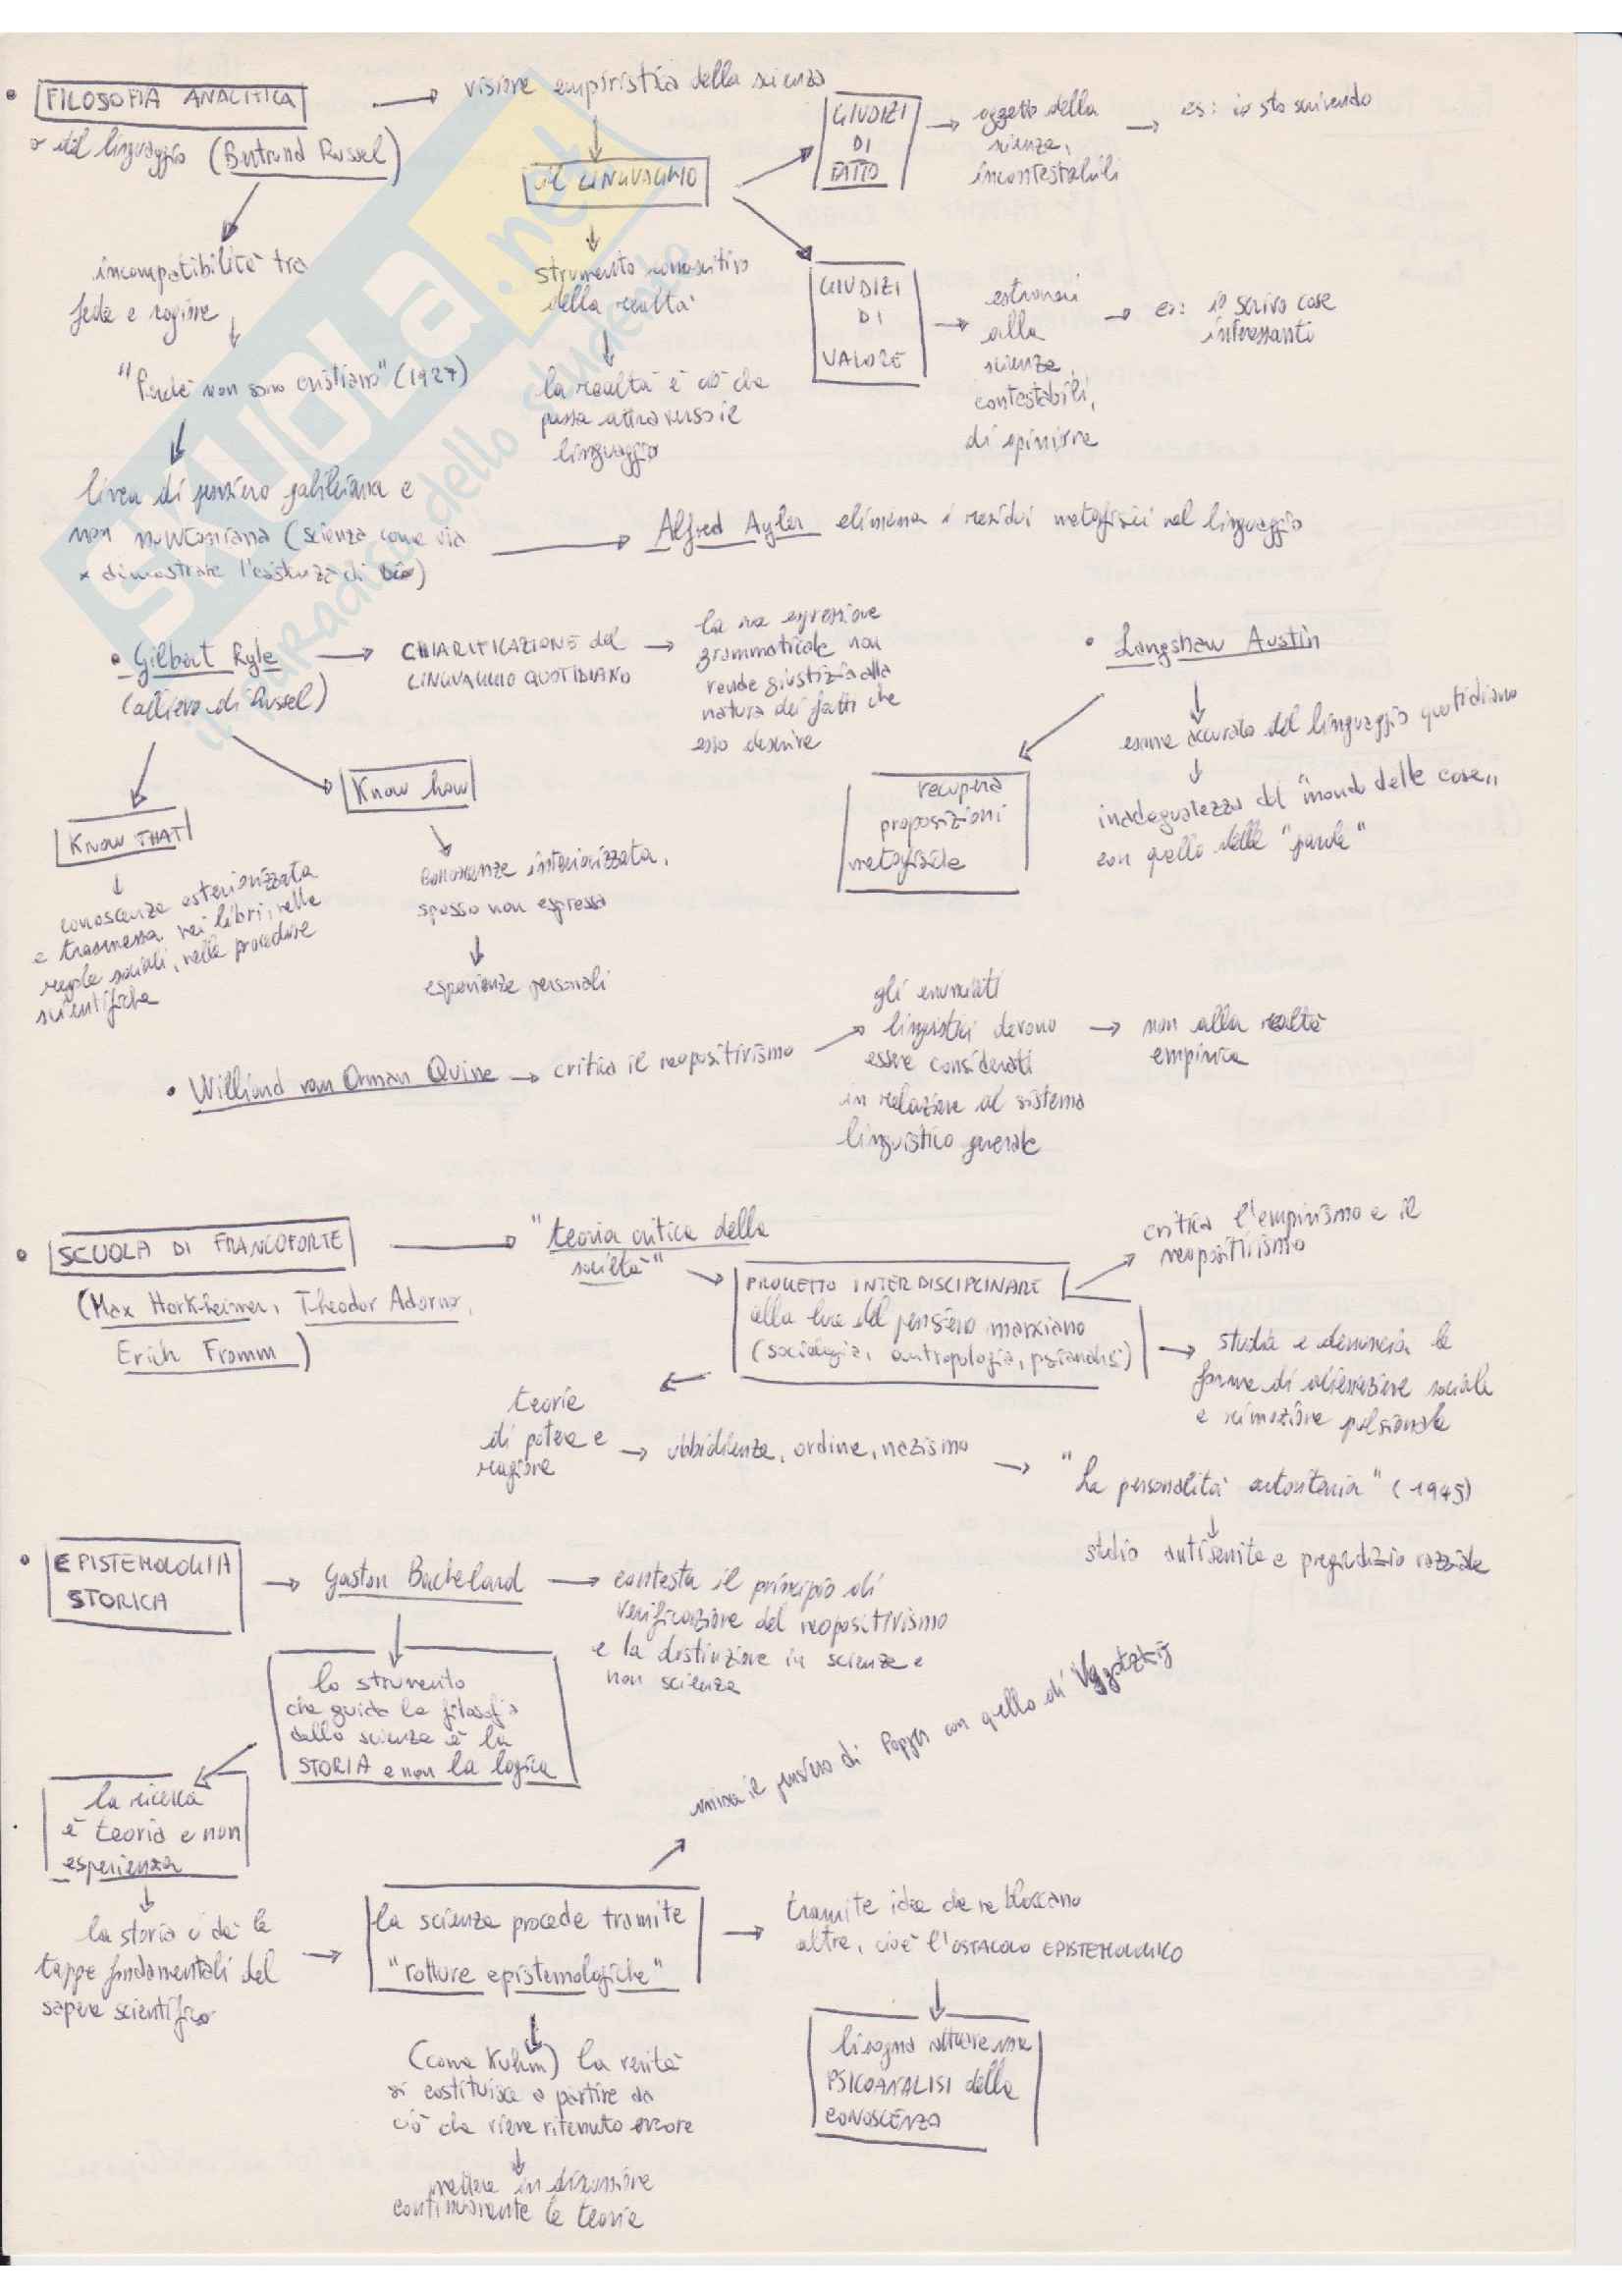 • FILOSOFIA ANALITICA
o del linguaggio (Bertrand Russel)
visione empiristica della scienza
il LINGUAGGIO
GIUDIZI
DI
FATTO
oggetto della
scienza,
incontestabili
es: io sto scrivendo
GIUDIZI
DI
VALORE
estranei
alla
scienza,
contestabili,
di opinione
es: io scrivo cose
interessanti
strumento conoscitivo
della realtà
la realtà è ciò che
passa attraverso il
linguaggio
incompatibilità tra
fede e ragione
"Perchè non sono cristiano" (1927)
linea di pensiero galileiana e
non newtoniana (scienza come via
x dimostrare l'esistenza di Dio)
Alfred Ayler elimina i residui metafisici nel linguaggio
• Gilbert Ryle
(allievo di Russel)
CHIARIFICAZIONE del
LINGUAGGIO QUOTIDIANO
la sua espressione
grammaticale non
rende giustizia alla
natura dei fatti che
esso descrive
Know THAT
conoscenza esteriorizzata
e trasmessa nei libri, nelle
regole sociali, nelle procedure
scientifiche
Know how
conoscenze interiorizzata,
spesso non espressa
esperienze personali
• Langshaw Austin
esame accurato del linguaggio quotidiano
inadeguatezza del "mondo delle cose"
con quello delle "parole"
recupera
proposizioni
metafisiche
• Williard van Orman Quine
critica il neopositivismo
gli enunciati
linguistici devono
essere considerati
in relazione al sistema
linguistico generale
non alla realtà
empirica
• SCUOLA DI FRANCOFORTE
(Max Horkheimer, Theodor Adorno,
Erich Fromm)
"teoria critica della
società"
PROGETTO INTERDISCIPLINARE
alla luce del pensiero marxiano
(sociologia, antropologia, psicanalisi)
critica l'empirismo e il
neopositivismo
studia e denuncia le
forme di alienazione sociale
e rimozione pulsionale
teorie
di potere e
ragione
ubbidienza, ordine, nazismo
"La personalità autoritaria" (1945)
studio antisemita e pregiudizio razziale
• EPISTEMOLOGIA
STORICA
Gaston Bachelard
contesta il principio di
verificazione del neopositivismo
e la distinzione in scienze e
non scienza
lo strumento
che guida la filosofia
della scienza è la
STORIA e non la logica
la ricerca
è teoria e non
esperienza
la storia ci dà le
tappe fondamentali del
sapere scientifico
la scienza procede tramite
"rotture epistemologiche"
unisce il pensiero di Popper con quello di Vygotzkij
tramite idee che ne bloccano
altre, cioè l'OSTACOLO EPISTEMOLOGICO
bisogna attuare una
PSICOANALISI della
CONOSCENZA
(come Kuhm) la verità
si costituisce a partire da
ciò che viene ritenuto errore
mettere in discussione
continuamente le teorie
SKUOLA.net
il paradiso dello studente